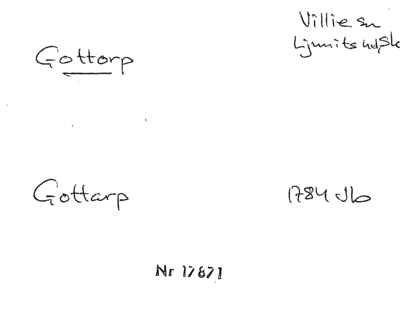 Villie sn
Gottorp
Ljunits hd, Sk
Gottarp
1784 Jb
Nr 17871